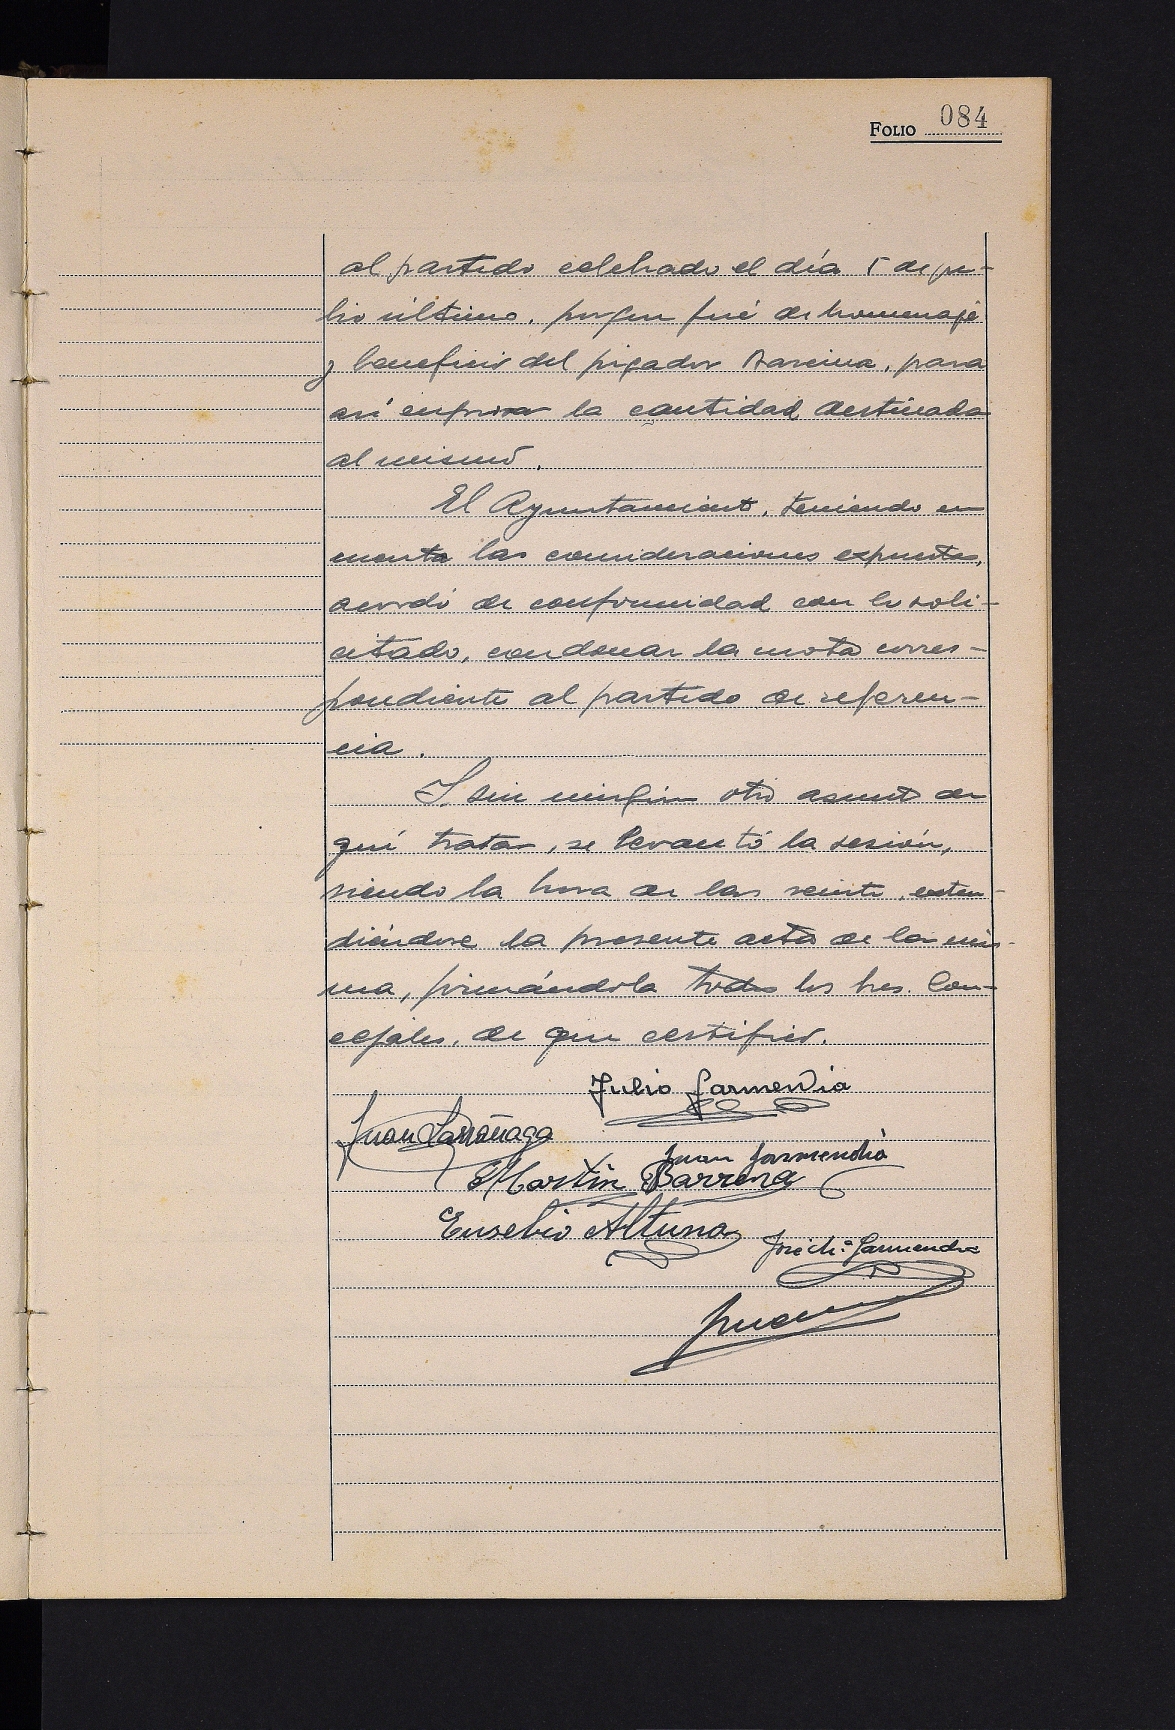 FOLIO 084
al partido celebrado el día 5 de ju-
lio último, porque fué de homenaje
y beneficio del jugador, para
así engrosar la cantidad destinada
al mismo.
El Ayuntamiento, teniendo en
cuenta las consideraciones expuestas,
acordó de conformidad con lo soli-
citado, condonar la cuota corres-
pondiente al partido de referen-
cia.
Y sin ningún otro asunto de
qué tratar, se levantó la sesión,
siendo la hora de las veinte, exten-
diéndose la presente acta de la mis-
ma, firmándola todos los Sres. Con-
cejales, de que certifico.
Julio Garmendia
Juan Larrañaga
Juan Garmendia
Martín Barrena
Eusebio Altuna
José Mª Garmendia